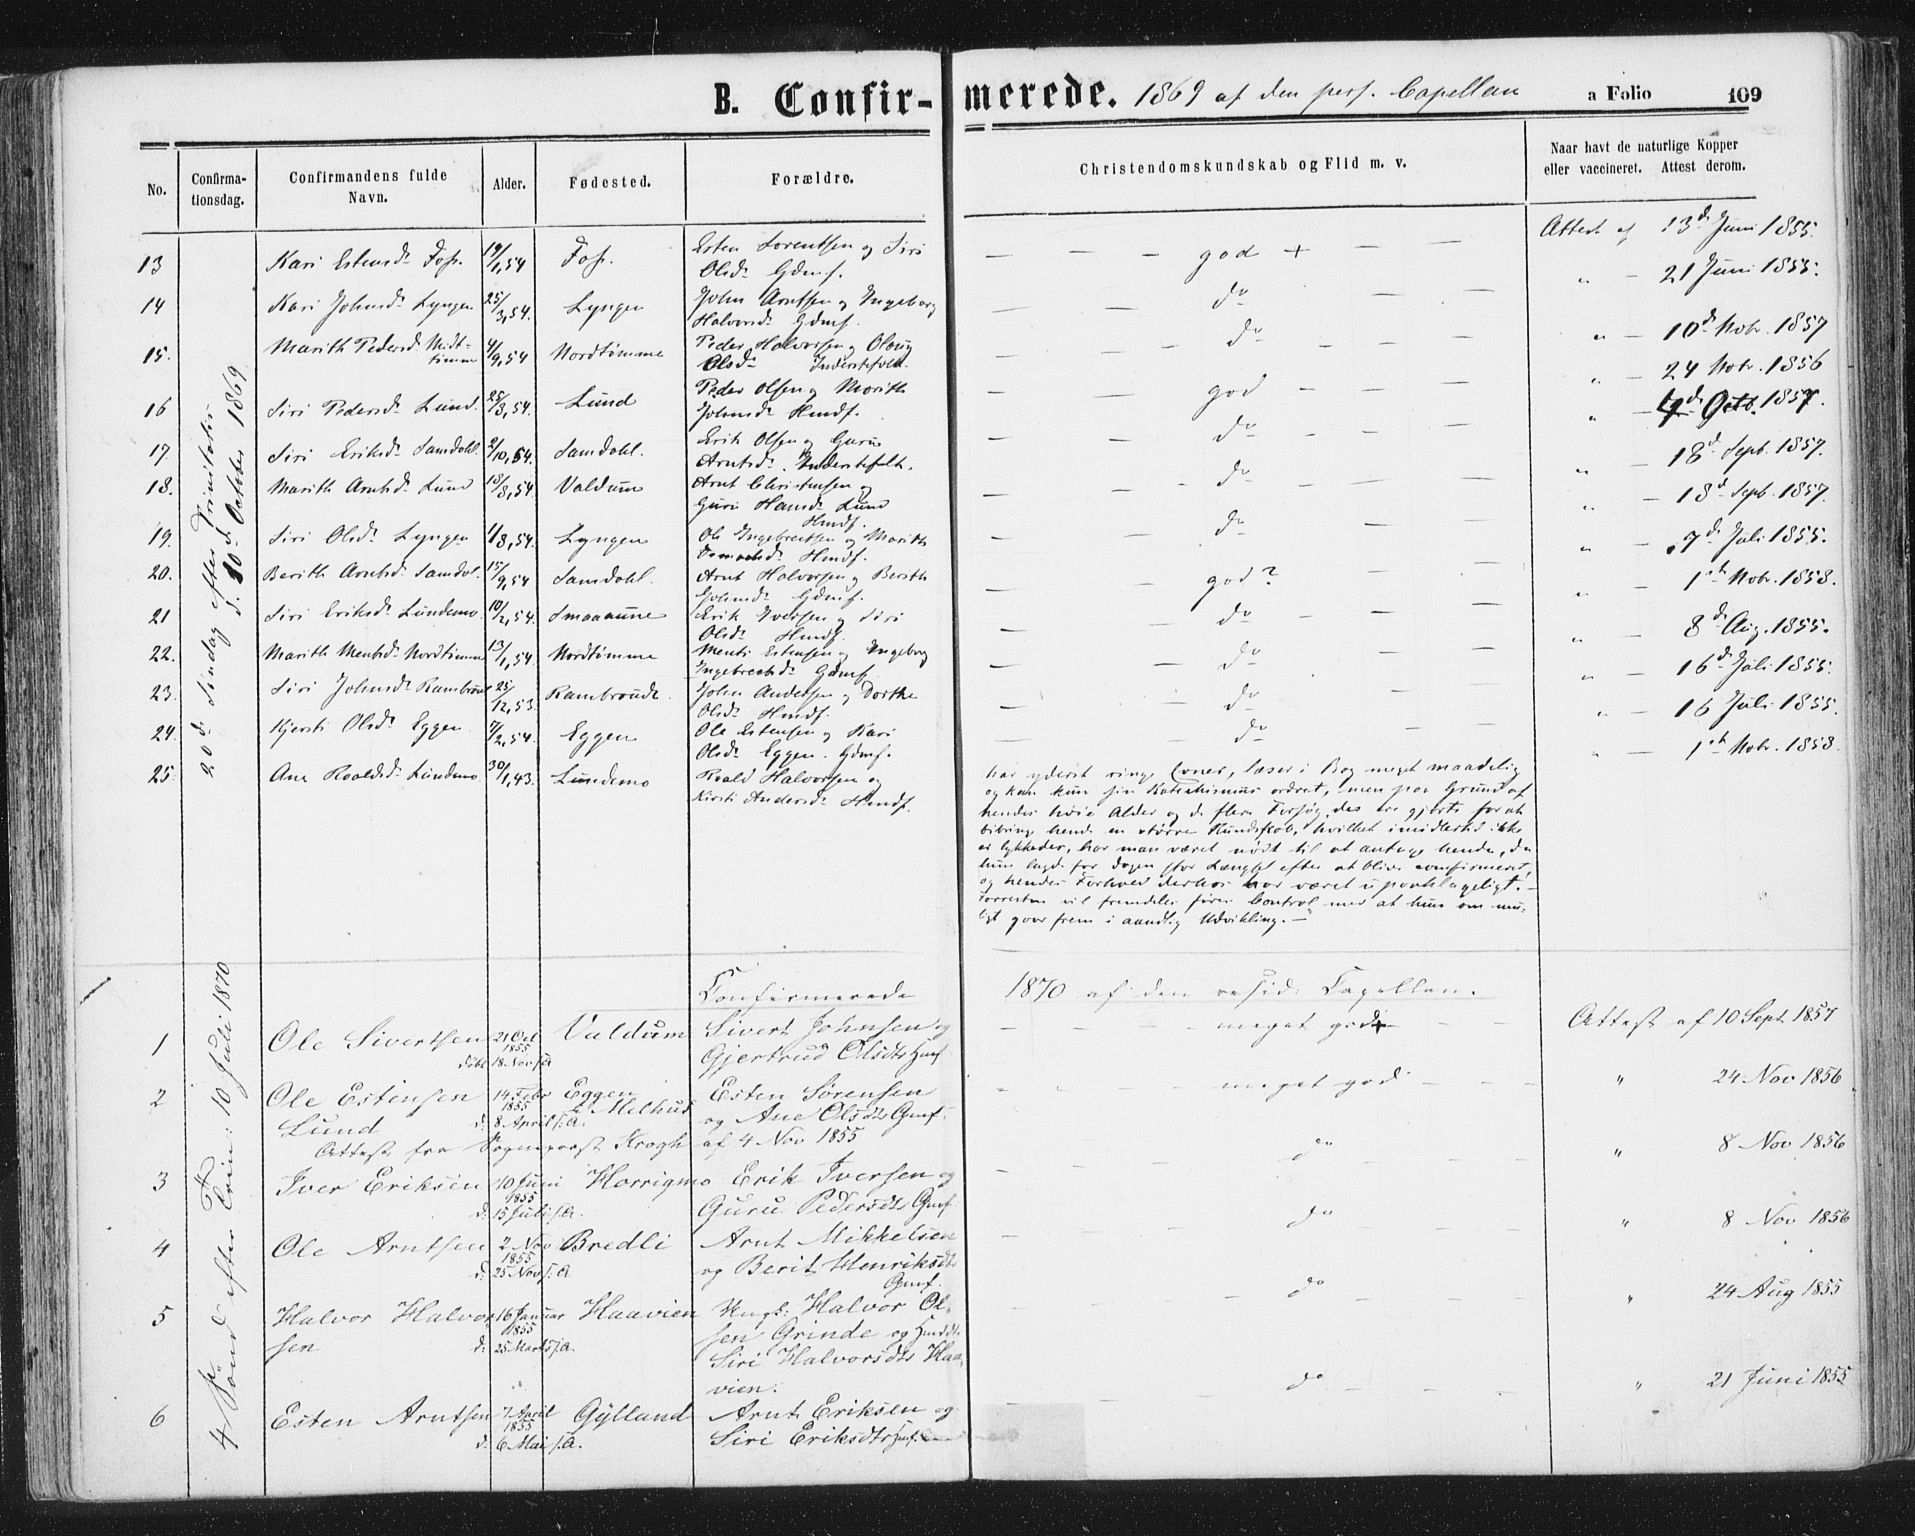 B. Confir-merede. 1869 af den pers. Capellan a Folio 109
No. Confirma-tionsdag. Confirmandens fulde Navn. Alder. Fødested. Forældre. Christendomskundskab og Flid m. v. Naar havt de naturlige Kopper eller vaccineret. Attest derom.
20de Søndag efter Trinitatis
d. 10d October 1869
13 Kari Estensdr Foss. 19/1,54 Foss. Esten Lorentsen og Siri
Olsdr Gdmf. — — — god + — — Attest af 13d Juni 1855.
14 Kari Johnsdr Lyngen 25/3,54. Lyngen John Arntsen og Ingeborg
Halvorsdr Gdmf. — — do — — " — 21 Juni 1855.
15. Marith Pedersdr Midt-
timme 4/9,54 Nordtømme Peder Halvorsen og Olaug
Olsdr Inderstefolk. — — — do — — " — 10d Nobr. 1857
16 Siri Pedersdr Lund. 25/3,54. Lund Peder Olsen og Marith
Johnsdr Hmdf. — — god — — — " — 24 Nobr. 1856
17 Siri Eriksdr Samdahl. 2/10,54. Samdahl. Erik Olsen og Guru
Arntsdr Inderstefolk. — — do — — " — 4d Octb. 1857.
18. Marith Arntsdr Lund 18/8,54. Valdum Arnt Christensen og
Guri Hansdr Lund
Hmdf. — — do — — " — 18d Septb. 1857.
19. Siri Olsdr Lyngen 1/8,54. Lyngen Ole Ingebretsen og Marith
Hmdf. — — do — — " — 18d Septb. 1857.
20. Berith Arntsdr Samdal. 15/9,54 Samdahl. Arnt Halvorsen og Berith
Johnsdr Gdmf. — — god? — — " — 7d Juli 1855.
21 Siri Eriksdr Lundemo 10/2,54. Smaaaune Erik Iversen og Siri
Olsdr Hmdf. — — do — — " — 1st Nobr. 1858.
22. Marith Mentsdr Nordtømme 13/1,54. Nordtømme Ments Estensen og Ingeborg
Ingebretsdr Gdmf. — — do — — " — 8d Aug. 1855.
23. Siri Johnsdr Rambraut 25/12,53. Rambraude. John Andersen og Dorthe
Olsdr Hmdf. — — do — — " — 16d Juli 1855.
24. Kjersti Olsdr Eggen 7/2,54. Eggen Ole Estensen og Kari
Olsdr Eggen. Gdmf. — — do — — " — 16 Juli 1855.
25. Ane Roaldsdr Lundemo 30/1,43. Lundemo Roald Halvorsen og
Kirsti Andersdr Hmdf. " — 1st Nobr. 1858.
har yderst ringe Evner, læser i Bog meget maadelig
og kan kun sin Katechismus ordret, men paa Grund af
hendes høie Alder og de flere Forsøg, der ere gjorte for at
bibringe hende en større Kundskab, hvilket imidlertid ikke
er lykkedes, har man været nødt til at antage hende, da
hun lagde for Dagen stor Længsel efter at blive confirmeret,
og hendes Forhold derhos har været upaaklageligt. —
Forresten vil fremdeles føres Control med at hun om mu-
ligt gaar frem i aandlig Udvikling. —
Confirmerede 1870 af den resid: Capellan.
4de Sønd. efter Trin: 10 Juli 1870
1 Ole Sivertsen 21 Oct
1855
døbt 18 Nov s. A Valdum Sivert Johnsen og
Gjertrud Olsdtr Hmf — — — meget god + — — Attest af 10 Sept 1857
2 Ole Estensen
Lund 14 Febr
1855
d. 8 April s. A. Eggen
i Melhus Esten Sørensen
og Ane Olsdtr Gmf. — — meget god — — " 24 Nov 1856
Attest fra Sognepræst Krogh af 4 Nov 1855
3 Iver Eriksen 10 Juni
1855
d. 15 Juli s. A. Horrigmo Erik Iversen og
Guru Pedersdtr Gmf — — do — — " 8 Nov 1856
4 Ole Arntsen 2 Nov
1855
d. 25 Nov s. A Bredli Arnt Mikkelsen
og Berit Henriksdtr
Gmf. — — do — — " 8 Nov 1856
5 Halvor Halvor-
sen 16 Januar
1855
d. 25 Marts s. A. Haavien Ungk: Halvor Ol-
sen Grinde og
Siri Halvorsdtr Haa-
vien. — — do — — " 24 Aug 1855
6 Esten Arntsen 7 April
1855
d. 6 Mai s. A. Gylland Arnt Eriksen og
Siri Eriksdtr Hmf. — — do — — " 21 Juni 1855